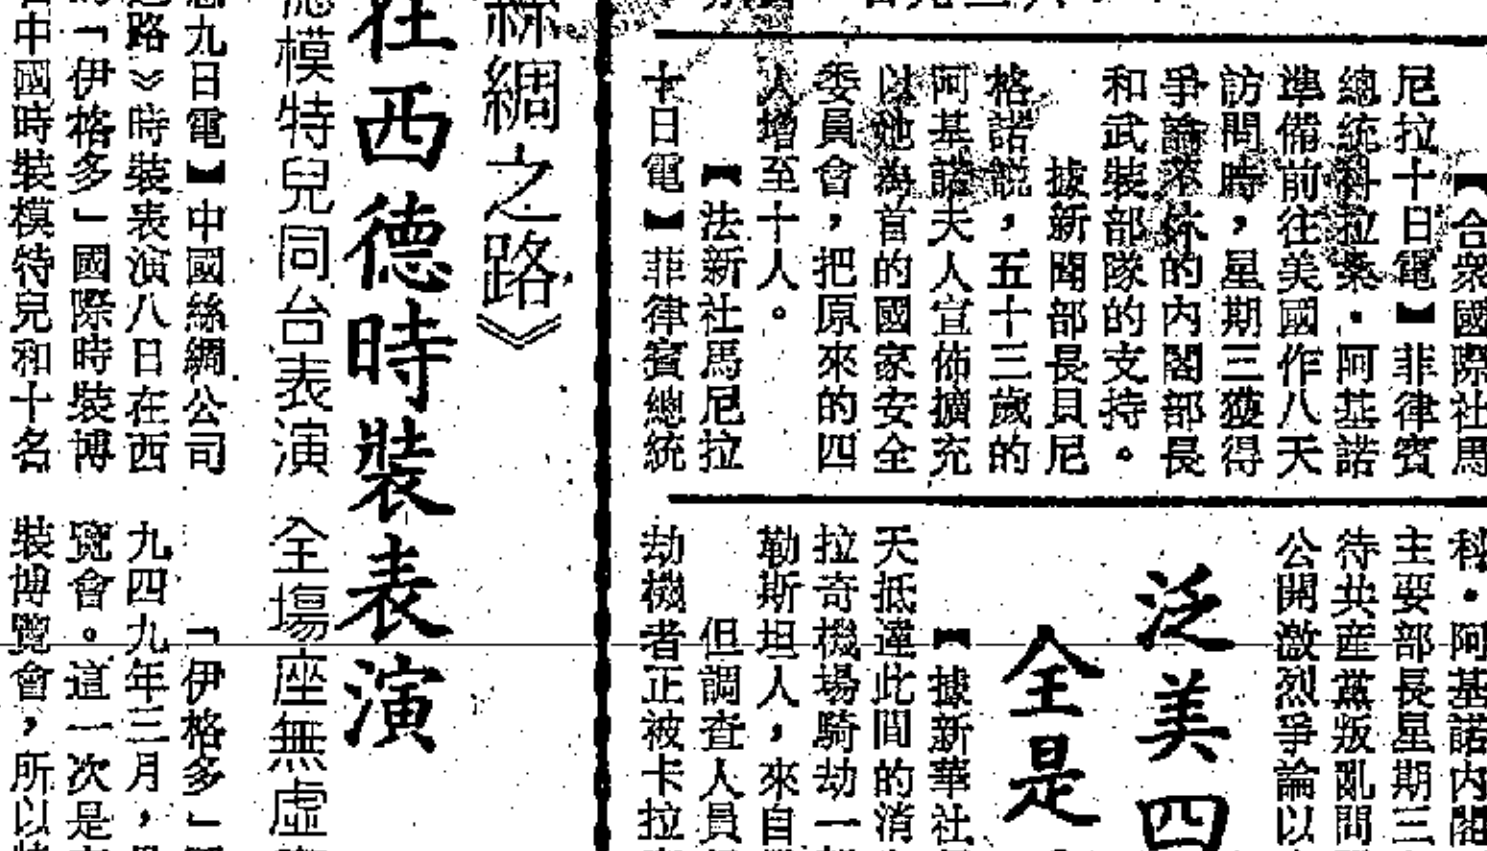 【合衆國際社馬
尼拉十日電】菲律賓
總統科拉桑·阿基諾
準備前往美國作八天
訪問時，星期三獲得
爭論不休的內閣部長
和武裝部隊的支持。
據新聞部長貝尼
格諾説，五十三歲的
阿基諾夫人宣佈擴充
以她為首的國家安全
委員會，把原來的四
人增至十人。
【法新社馬尼拉
十日電】菲律賓總統
科·阿基諾內閣
主要部長星期三
待共産黨叛亂問
公開激烈爭論以
泛美四
全是
【據新華社
天抵達此間的消
拉奇機場騎劫一
勒斯坦人，來自
但調查人員
劫機者正被卡拉
絲綢之路》
在西德時裝表演
模特兒同台表演 全塲座無虛
九日電】中國絲綢公司
路》時裝表演八日在西
「伊格多」國際時裝博
中國時裝模特兒和十名
「伊格多」
九四九年三月，
覽會。這一次是
裝博覽會，所以